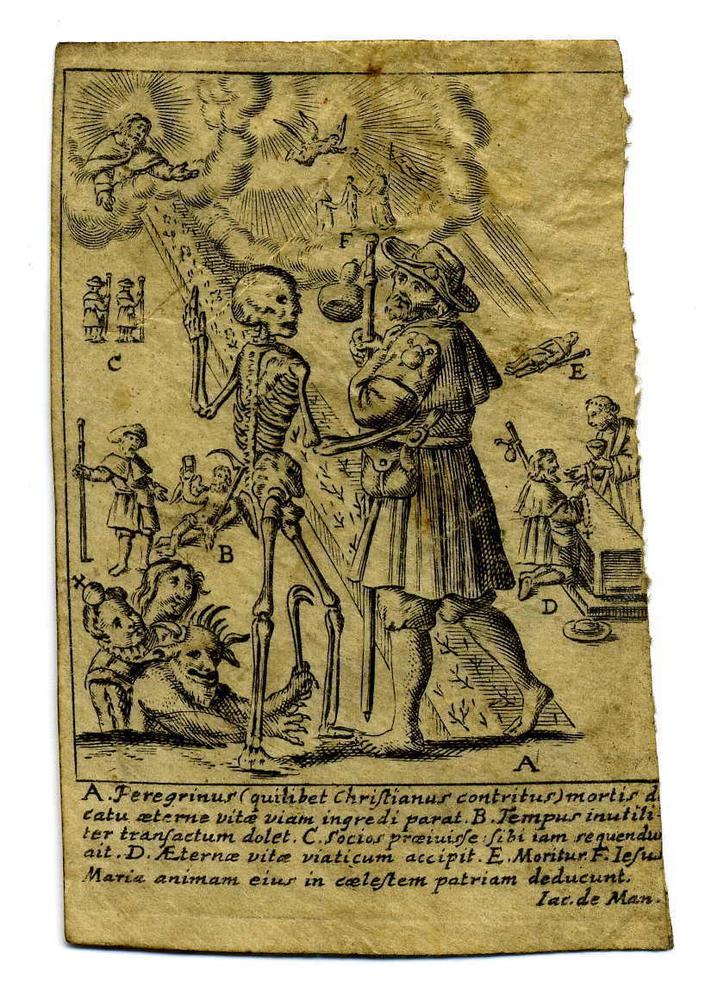 F
C
E
B
D
A
A. Peregrinus (quilibet Christianus contritus) mortis d
catu æterne vitæ viam ingredi parat. B. Tempus inutili-
ter transactum dolet. C. Socios præiuisse: sibi iam sequendu
ait. D. Æternæ vitæ viaticum accipit. E. Moritur. F. Iesus
Maria animam eius in cælestem patriam deducunt.
Iac. de Man.